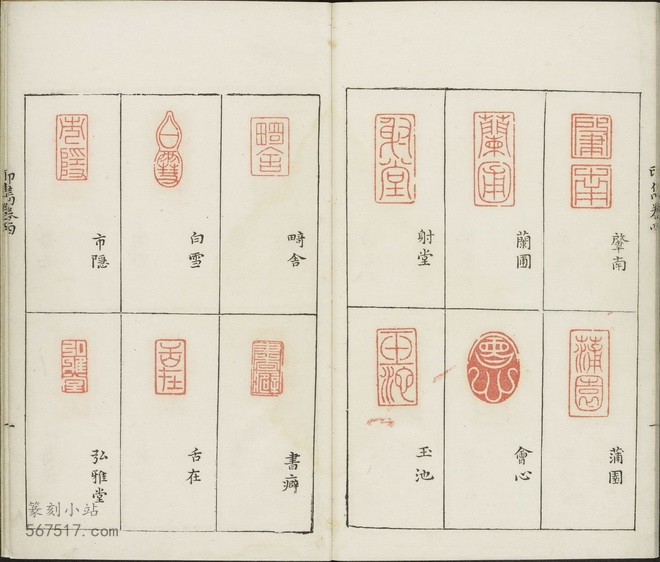 肇南
蘭圃
射堂
蒲園
會心
玉池
畸舍
白雪
市隱
書癖
舌在
弘雅堂
印雋卷四
篆刻小站
567517.com